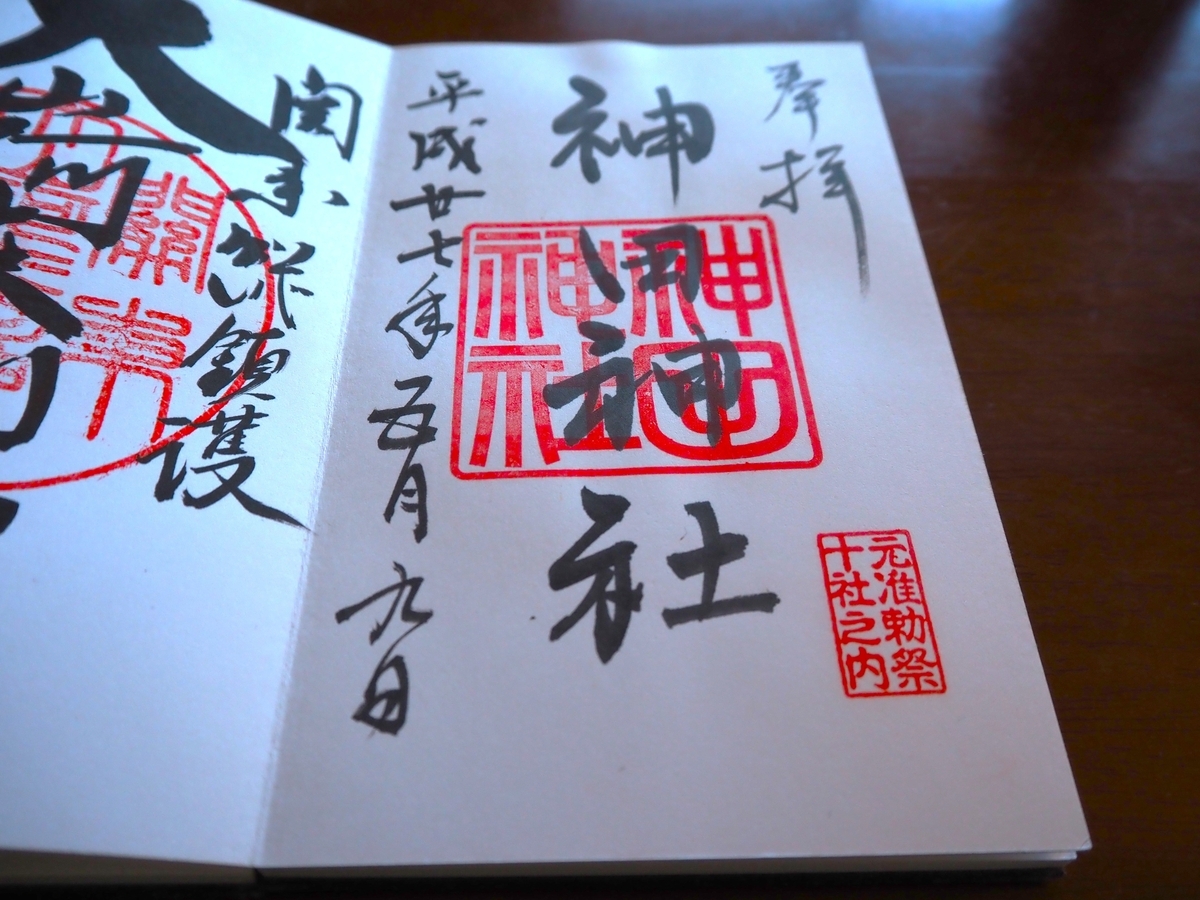 奉拝
神田神社
神田
神社
平成廿七年五月九日
元准勅祭
十社之内
関東総鎮護